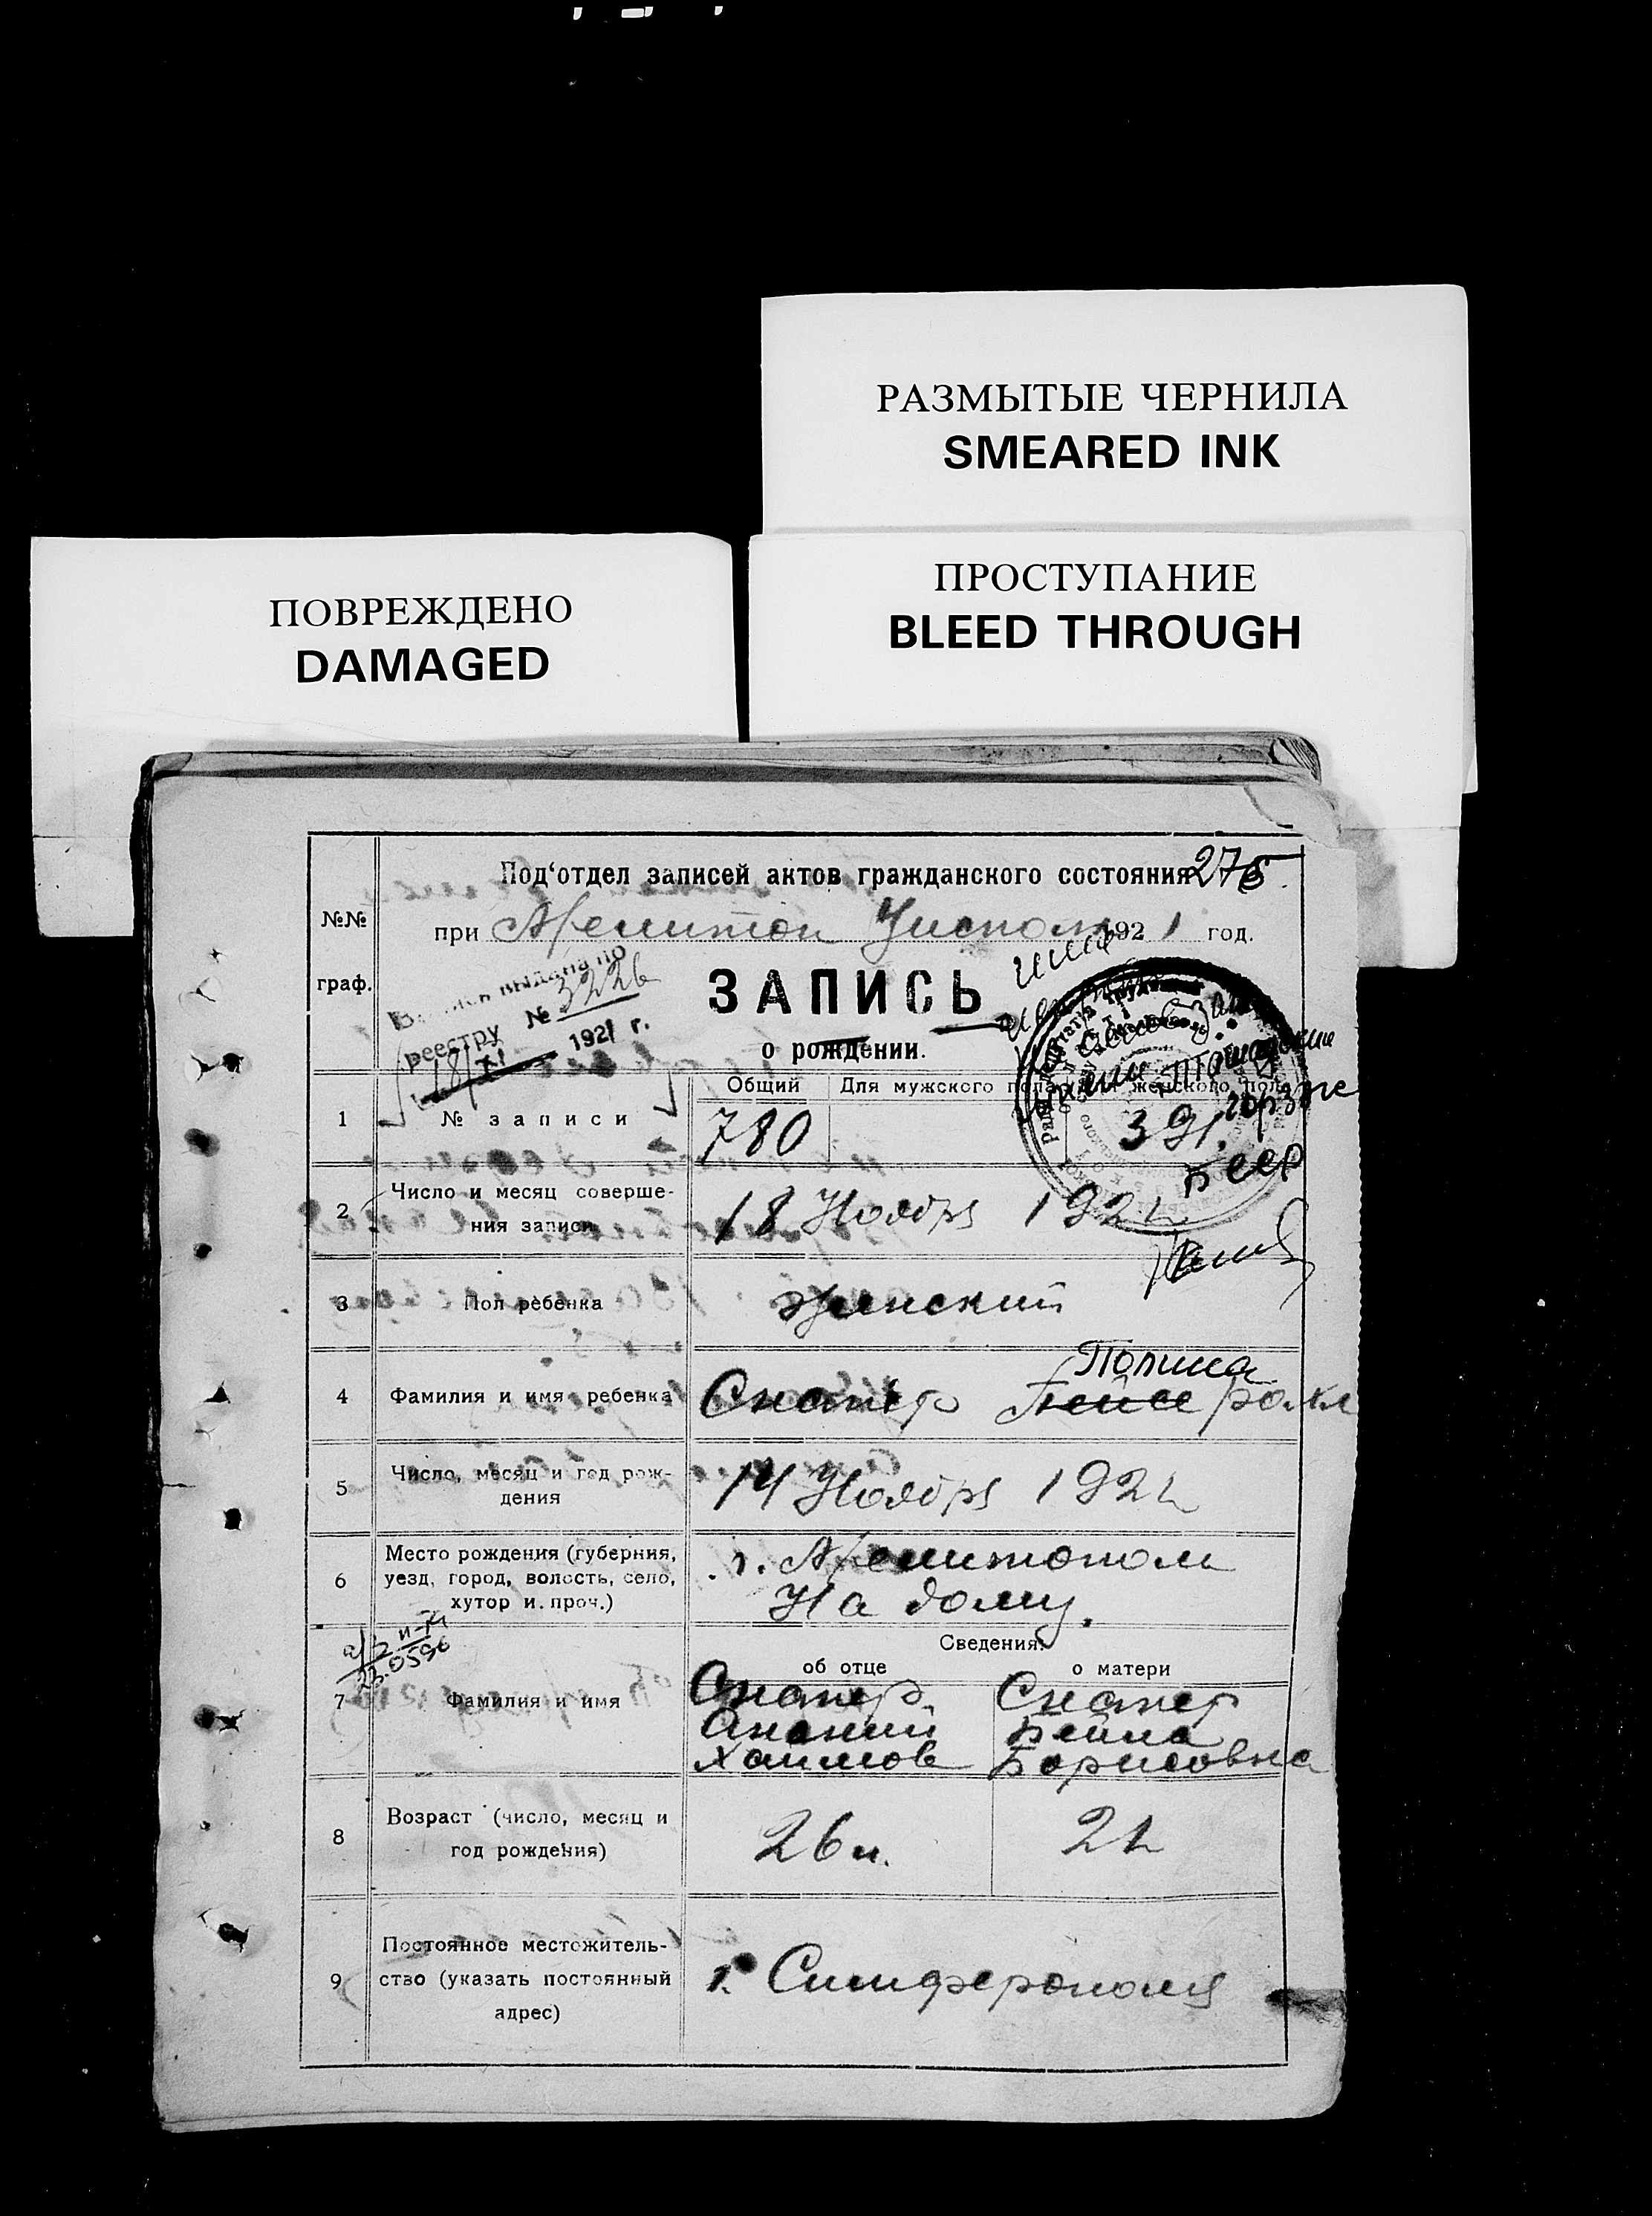 РАЗМЫТЫЕ ЧЕРНИЛА
SMEARED INK
ПРОСТУПАНИЕ
BLEED THROUGH
ПОВРЕЖДЕНО
DAMAGED
275.
Под‘отдел записей актов гражданского состояния
№№
граф.
при Мелитоп Уиспол 192 1 год.
выдана по
реестру № 3226
18/XI 1921 г.
ЗАПИСЬ
о рождении.
Общий Для мужского пола женского пола
1 № записи 780 391.
2 Число и месяц соверше-
ния записи 18 Ноября 1921
3 Пол ребенка женский
Полина
4 Фамилия и имя ребенка Снапер Пейсе
5 Число, месяц и год рож-
дения 14 Ноября 1921
6 Место рождения (губерния,
уезд, город, волость, село,
хутор и. проч.)
г. Мелитополь
На дому.
Сведения:
об отце о матери
7 Фамилия и имя
Снапер Снапер
Ананий Бейла
Хаимов Борисовна
8 Возраст (число, месяц и
год рождения) 26 л. 21
9 Постоянное местожитель-
ство (указать постоянный
адрес)
г. Симферополь